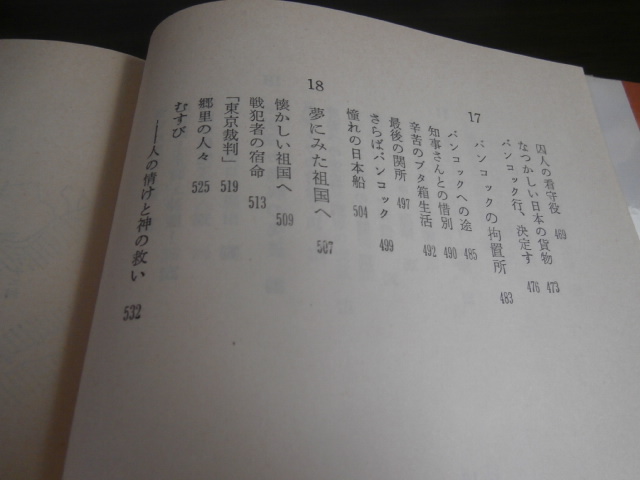 囚人の看守役 469
なつかしい日本の貨物 473
バンコック行、決定す 476
17 バンコックの拘置所 483
バンコックへの途 485
知事さんとの惜別 490
辛苦のブタ箱生活 492
最後の関所 497
さらばバンコック 499
憧れの日本船 504
18 夢にみた祖国へ 507
懐かしい祖国へ 509
戦犯者の宿命 513
「東京裁判」 519
郷里の人々 525
むすび
――人の情けと神の救い 532